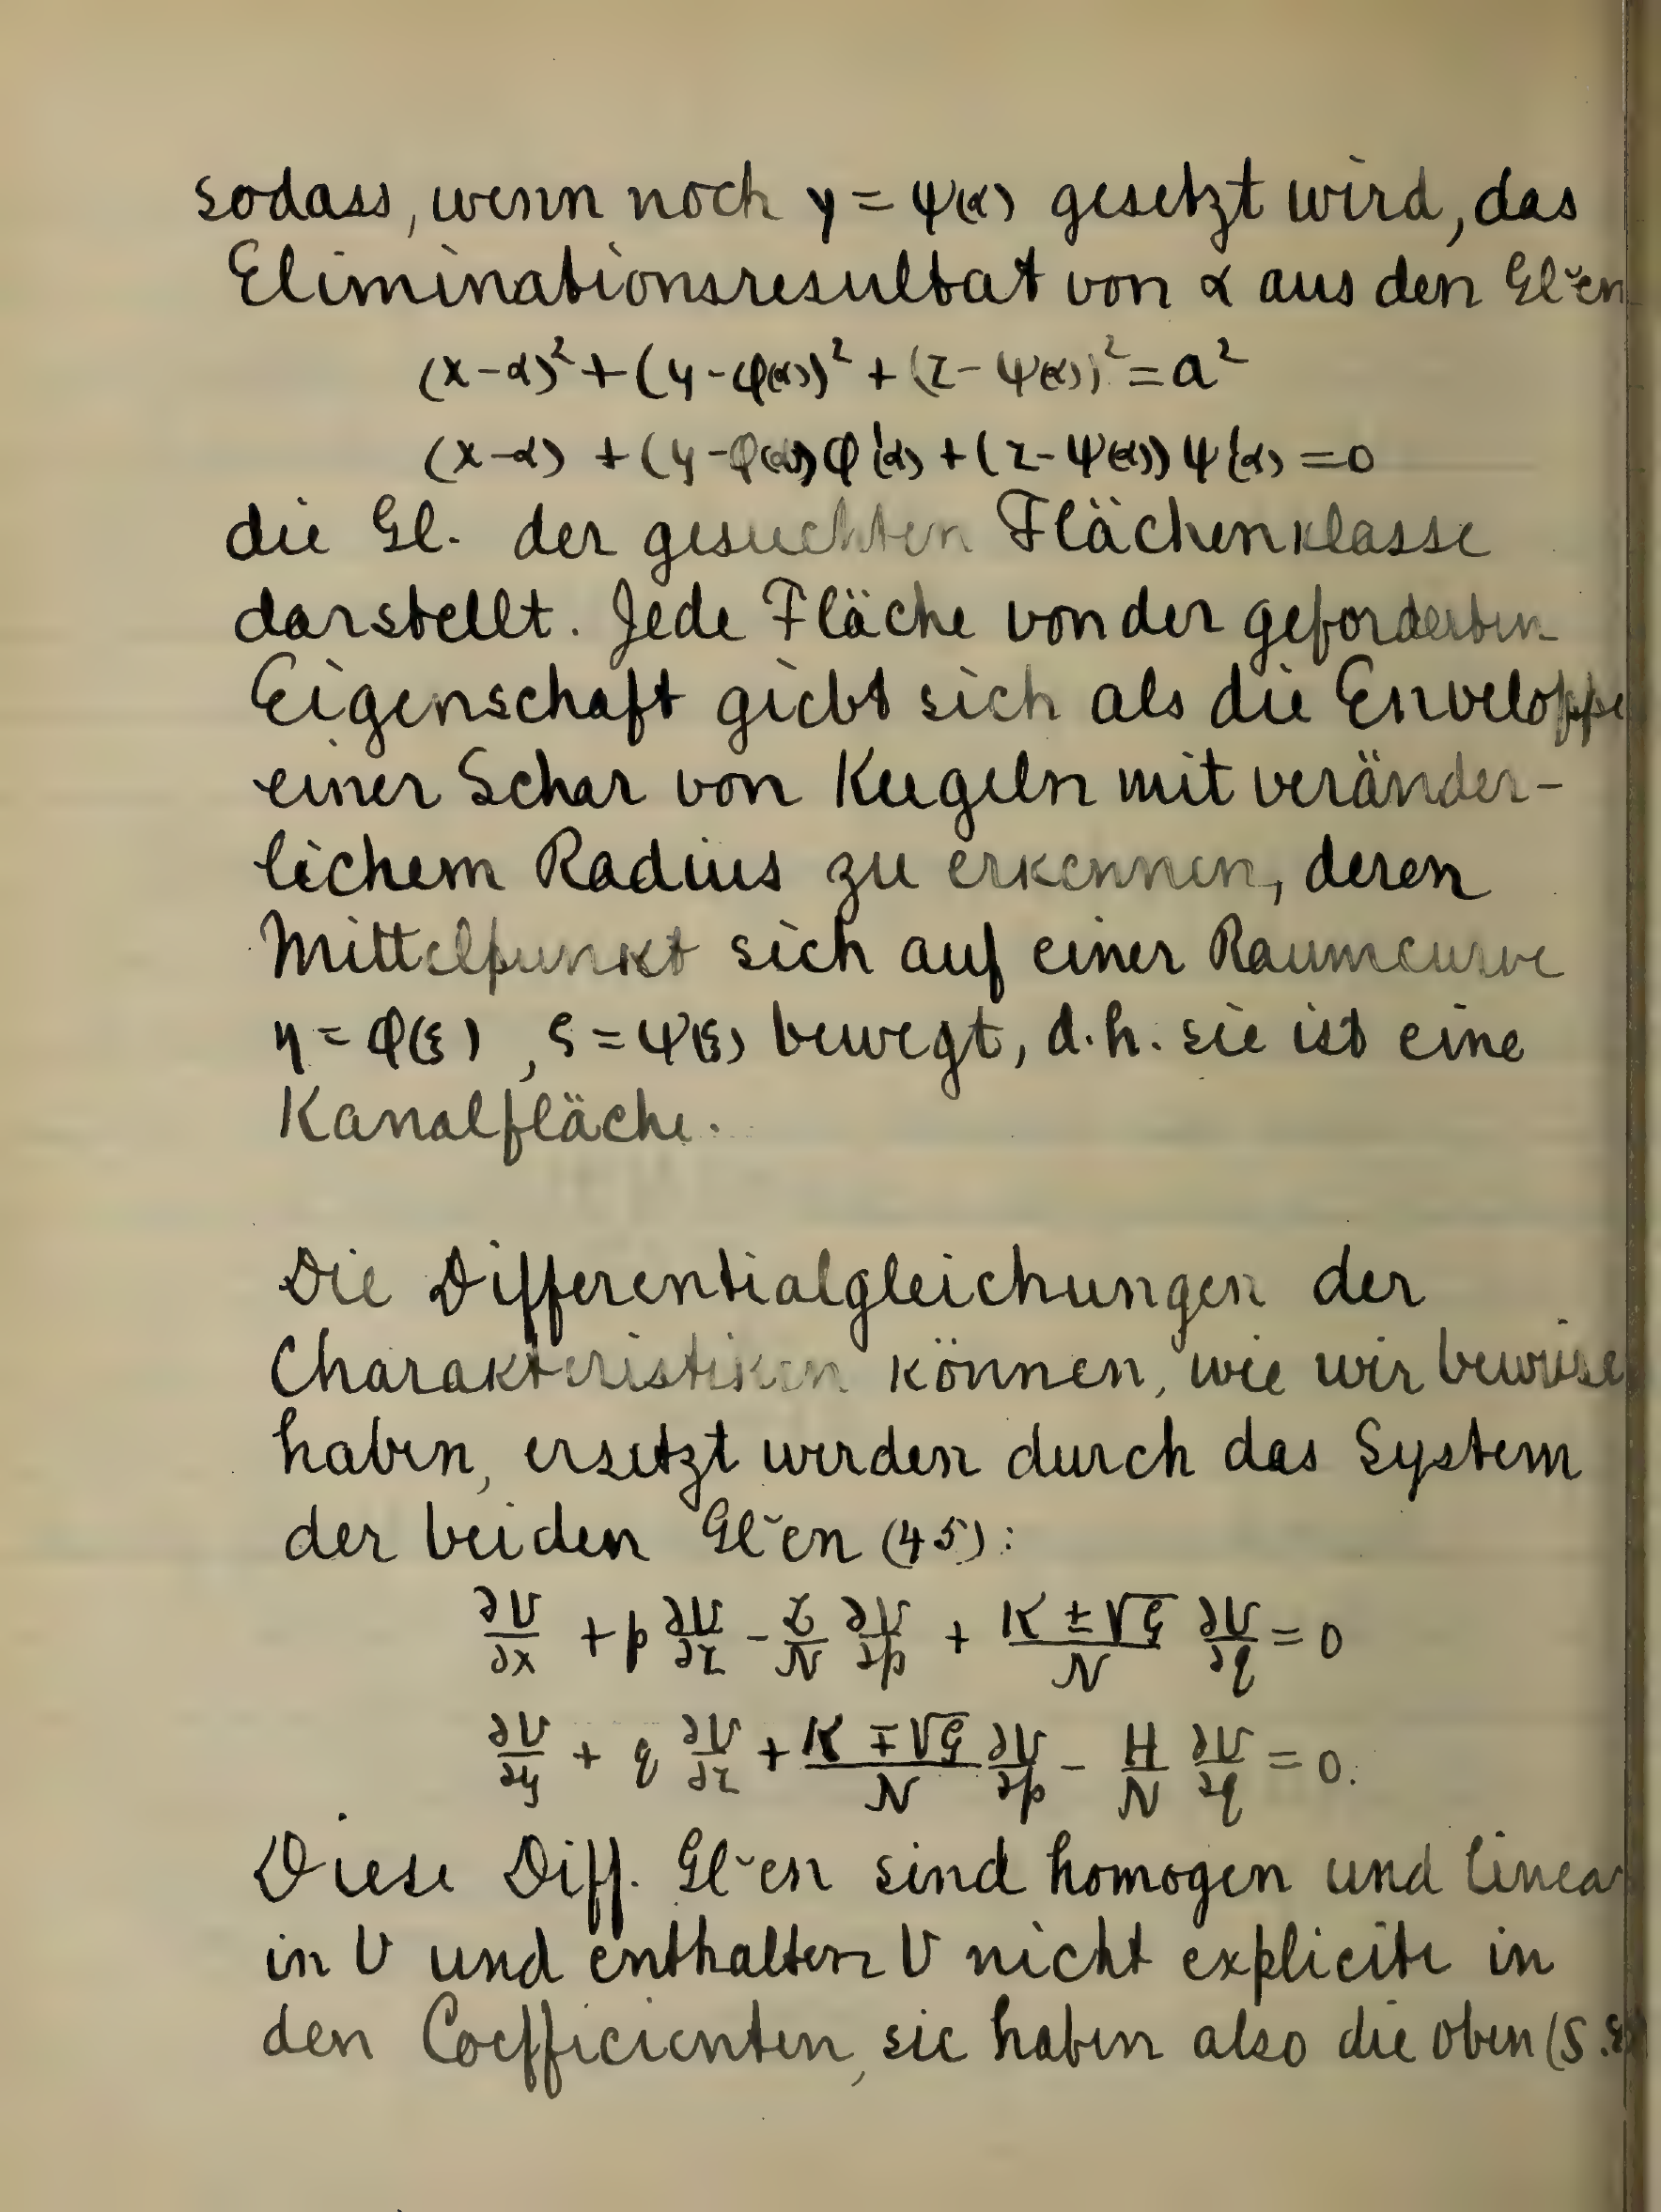 sodass, wenn noch γ = ψ(α) gesetzt wird, das
Eliminationsresultat von α aus den Gl˘en
(x-α)² + (y-φ(α))² + (z-ψ(α))² = a²
(x-α) + (y-φ(α))φ'(α) + (z-ψ(α))ψ'(α) = 0
die Gl. der gesuchten Flächenklasse
darstellt. Jede Fläche von der geforderten
Eigenschaft giebt sich als die Enveloppe
einer Schar von Kugeln mit veränder-
lichem Radius zu erkennen, deren
Mittelpunkt sich auf einer Raumcurve
η = φ(ξ), ζ = ψ(ξ) bewegt, d.h. sie ist eine
Kanalfläche.
Die Differentialgleichungen der
Charakteristiken können, wie wir bewiese
haben, ersetzt werden durch das System
der beiden Gl˘en (45):
∂V/∂x + p ∂V/∂z - L/N ∂V/∂p + (K ± √G)/N ∂V/∂q = 0
∂V/∂y + q ∂V/∂z + (K ∓ √G)/N ∂V/∂p - H/N ∂V/∂q = 0.
Diese Diff. Gl˘en sind homogen und linear
in V und enthalten V nicht explicite in
den Coefficienten, sie haben also die oben (S.